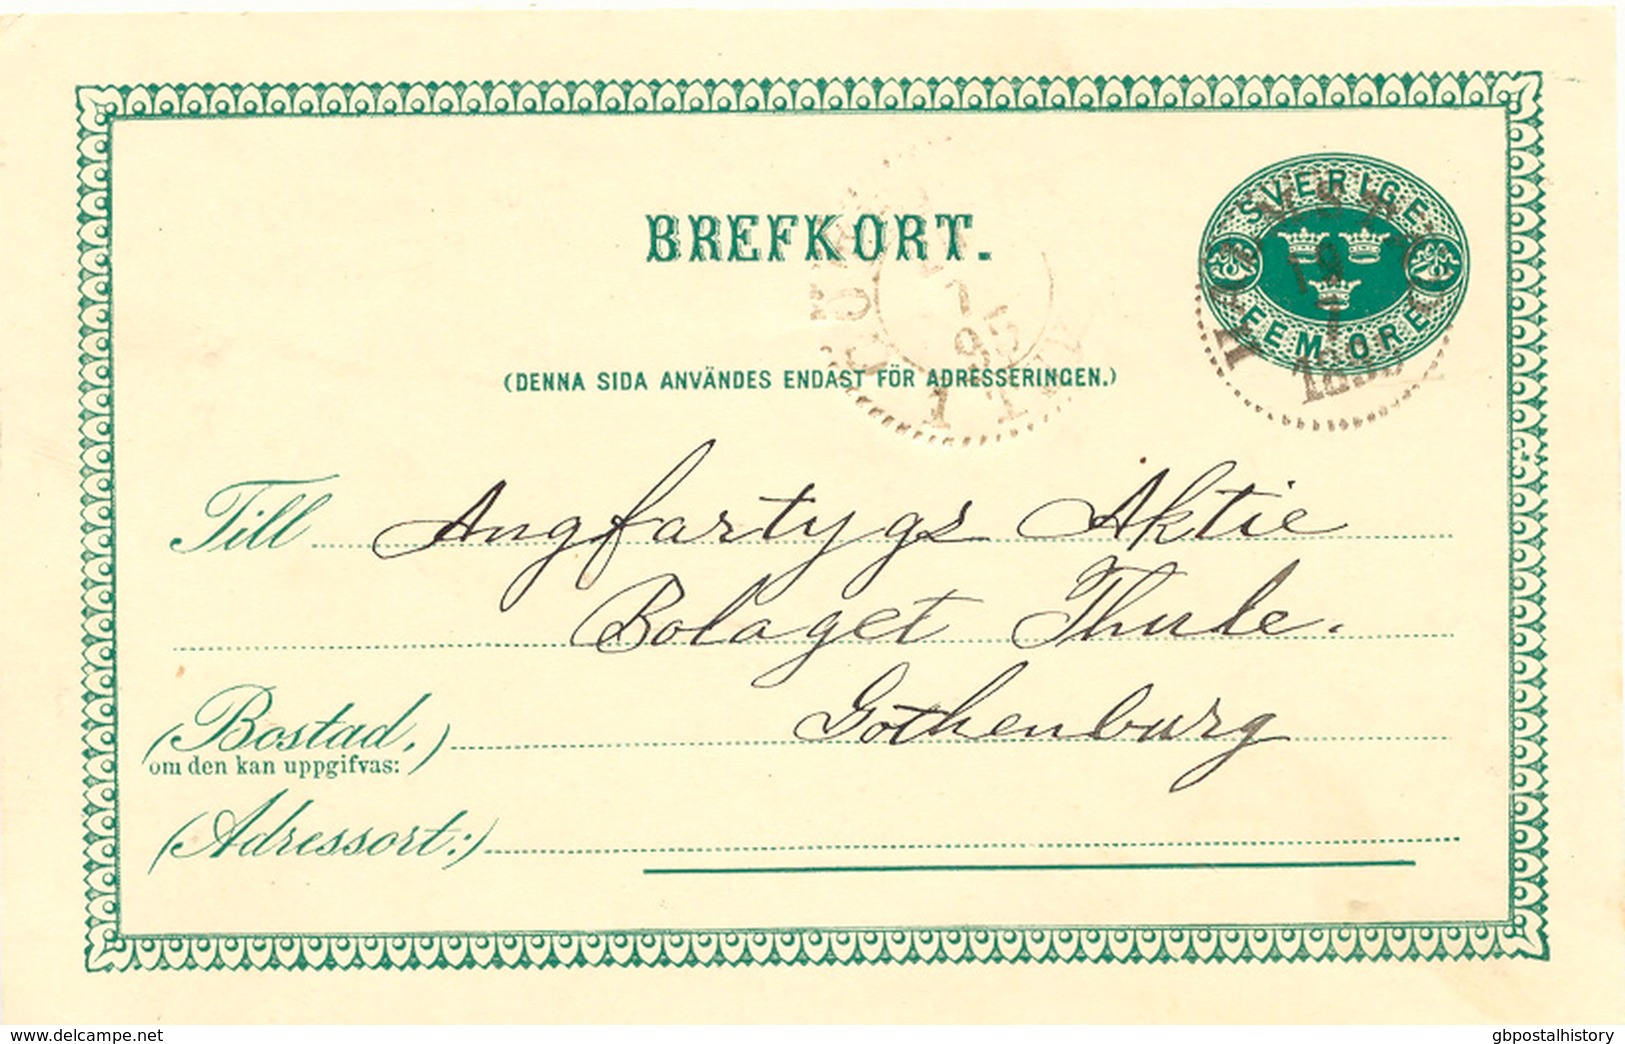 BREFKORT.
SVERIGE
FEM ÖRE
19
1
(DENNA SIDA ANVÄNDES ENDAST FÖR ADRESSERINGEN.)
Till Angfartygs Aktie
Bolaget Thule.
(Bostad,) Gothenburg
om den kan uppgifvas:
(Adressort:)
www.delcampe.net
gbpostalhistory